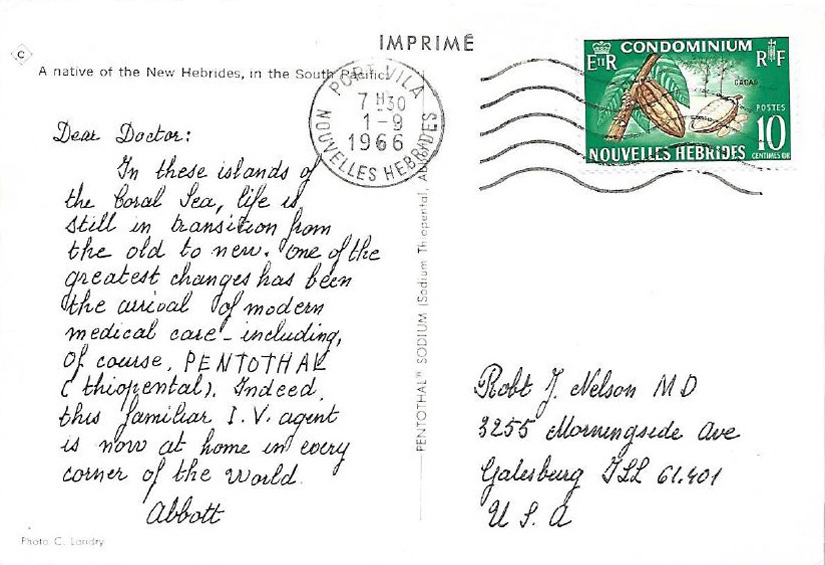 IMPRIMÉ
C
A native of the New Hebrides, in the South Pacific
PORT-VILA
7 H 30
1-9
1966
NOUVELLES HEBRIDES
CONDOMINIUM
E II R
R F
CACAO
POSTES
10
CENTIMES OR
NOUVELLES HEBRIDES
Dear Doctor:
In these islands of
the Coral Sea, life is
still in transition from
the old to new. One of the
greatest changes has been
the arrival of modern
medical care - including,
of course, PENTOTHAL
(thiopental). Indeed,
this familiar I.V. agent
is now at home in every
corner of the World.
Abbott
PENTOTHAL® SODIUM (Sodium Thiopental, Abbott)
Robt J. Nelson MD
3255 Morningside Ave
Galesburg ILL 61.401
U S A
Photo C. Landry